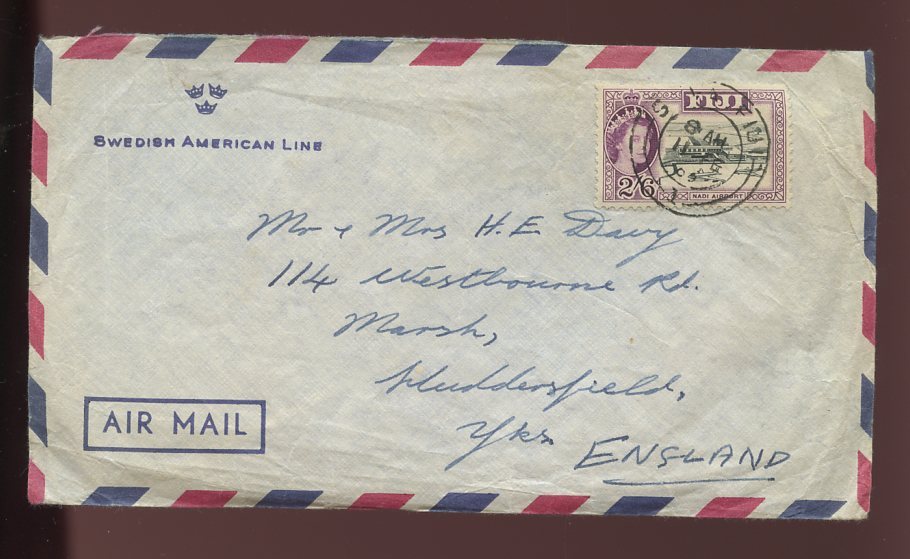 SWEDISH AMERICAN LINE
FIJI
2/6
NADI AIRPORT
Mr & Mrs H. E. Davy
114 Westbourne Rd.
Marsh,
Huddersfield,
Yks.
ENGLAND
AIR MAIL